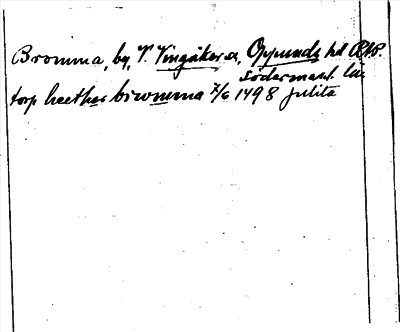 Bromma, by, V. Vingåker sn, Oppunda hd
Södermanl. län
torp heether biwmma 7/6 1498 Julita